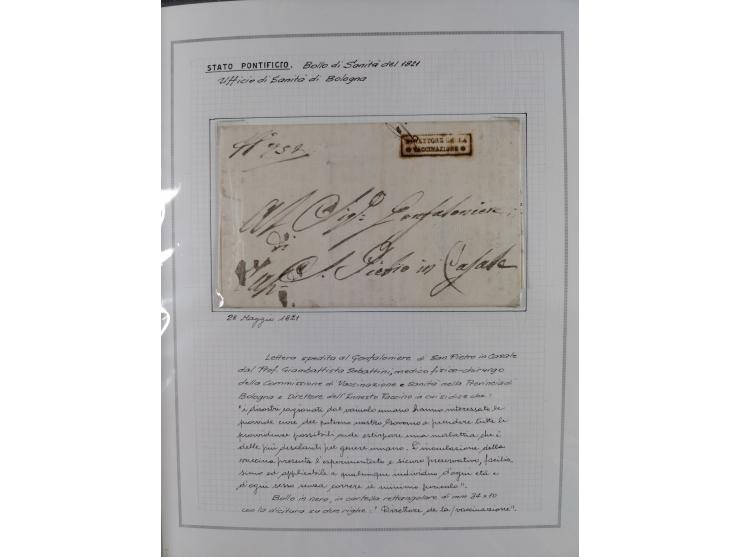 STATO PONTIFICIO. Bollo di Sanità del 1821
Ufficio di Sanità di Bologna
DIRETTORE DE LA
VACCINAZIONE
Al Sigr. Gonfaloniere
di
S. Pietro in Casale
28 Maggio 1821
Lettera spedita al Gonfaloniere di San Pietro in Casale
dal Prof. Giambattista Sabattini, medico fisico-chirurgo
della Commissione di Vaccinazione e Sanità nella Provincia di
Bologna e Direttore dell'Innesto Vaccino in cui si dice che:
"i disastri cagionati dal vaiuolo umano hanno interessato le
provvide cure del paterno nostro Governo a prendere tutte le
providenze possibili onde estirpare una malattia che è
delle più desolanti pel genere umano. L'inoculazione della
vaccina presenta l'esperimentato e sicuro preservativo, facilis
simo ed applicabile a qualunque individuo d'ogni età e
d'ogni sesso senza correre il minimo pericolo".
Bollo in nero, in cartella rettangolare di mm 34x10
con la dicitura su due righe: "Direttore de la / vaccinazione".